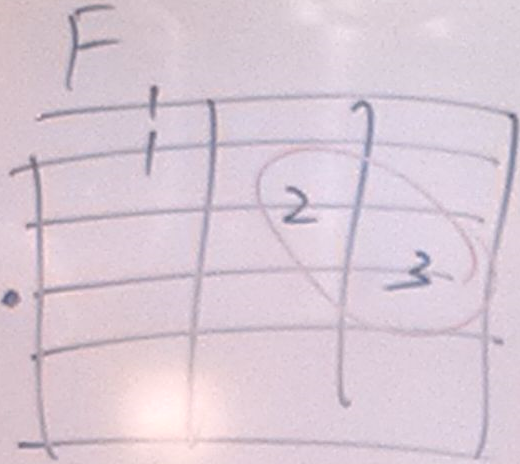 F
1
1
2
3